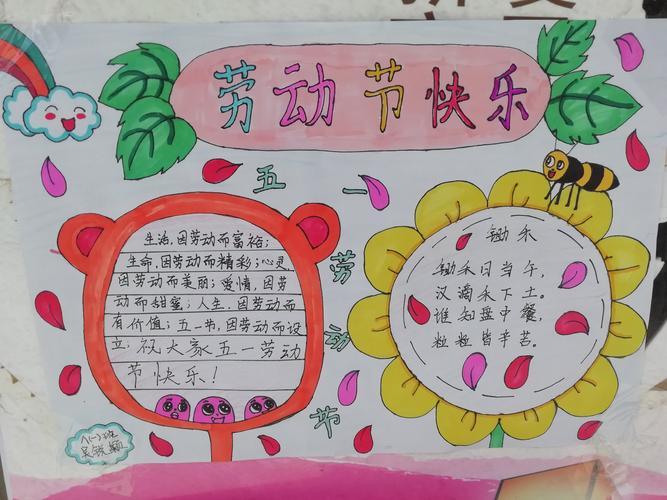 劳动节快乐
五一劳动节
生活,因劳动而富裕;
生命,因劳动而精彩;心灵
因劳动而美丽;爱情,因劳
动而甜蜜;人生,因劳动而
有价值;五一节,因劳动而设
立;祝大家五一劳动
节快乐!
锄禾
锄禾日当午,
汉滴禾下土。
谁知盘中餐,
粒粒皆辛苦。
八(一)班